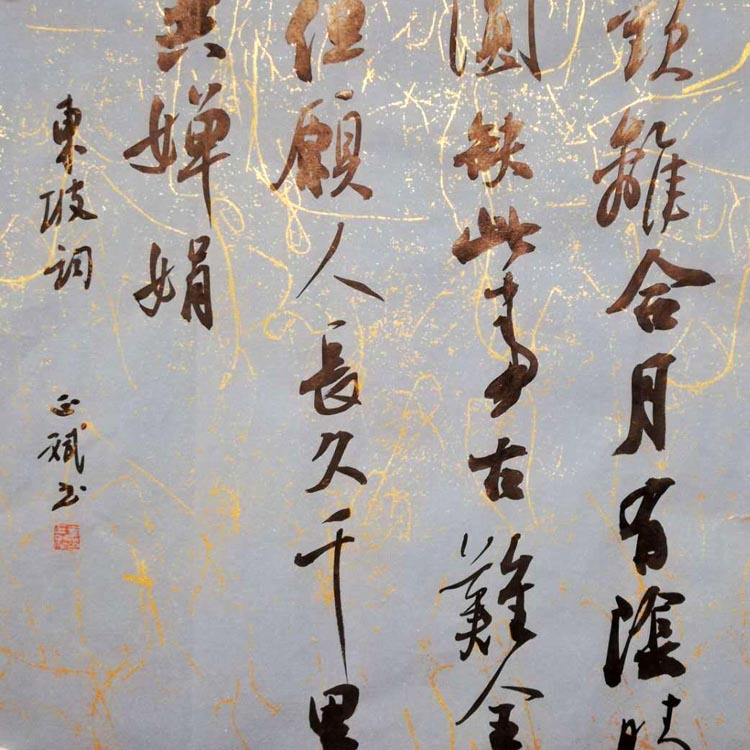 歡離合月有陰晴
圓缺此事古難全
但願人長久千里
共嬋娟
東坡詞
正斌书